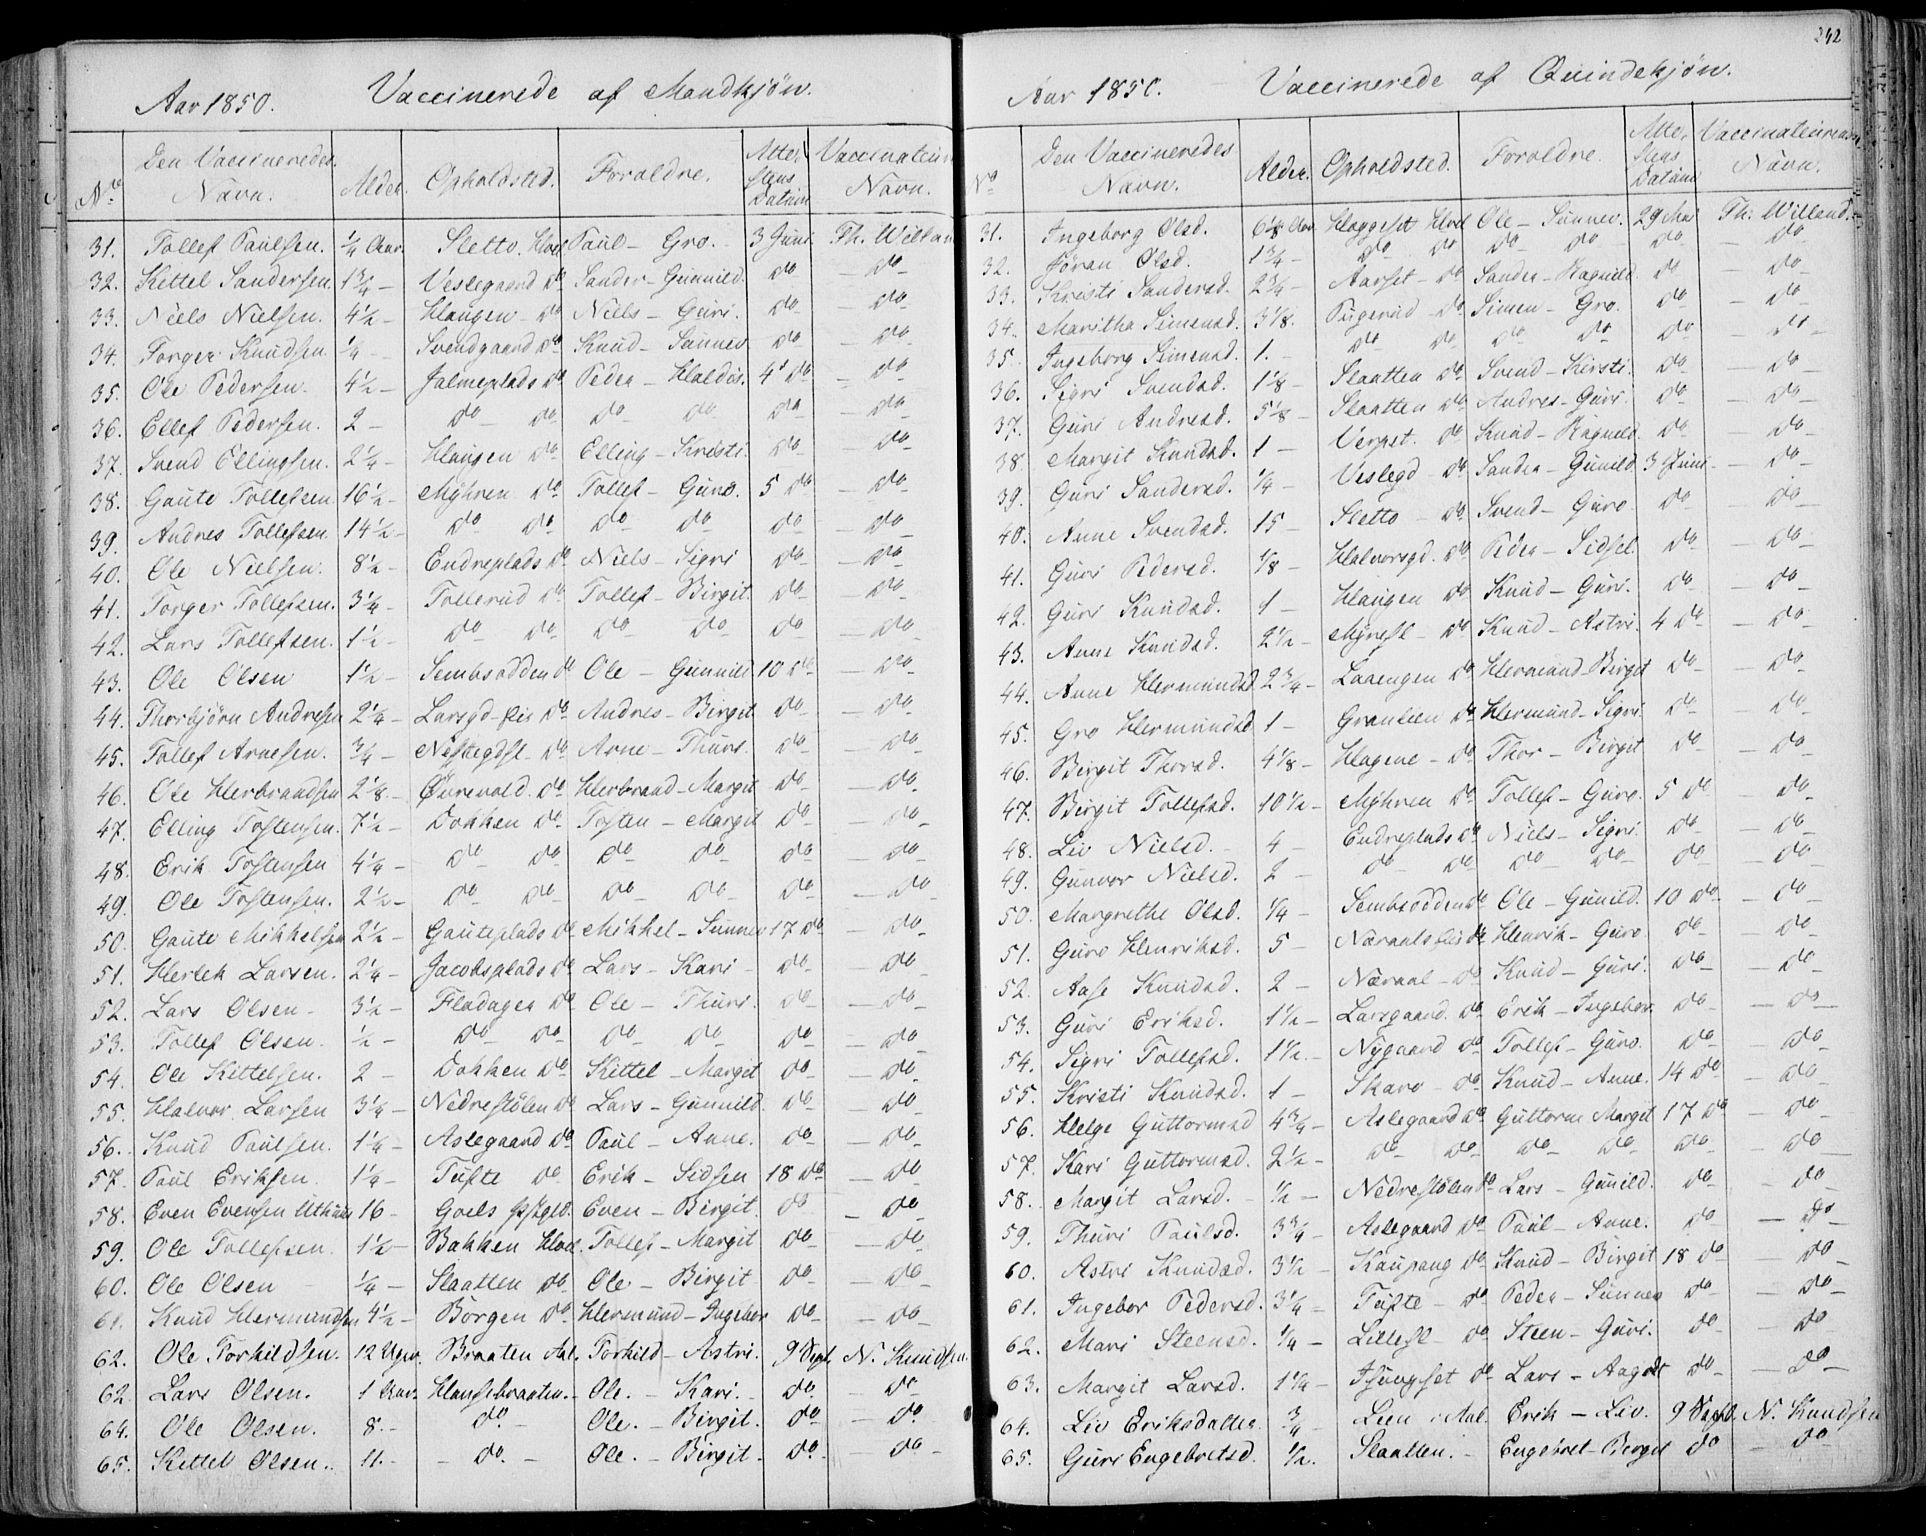 242
Aar 1850. Vaccinerede af Mandkjøn.
No Den Vaccineredes Navn. Alder. Opholdsted. Forældre. Attestens Datum Vaccinateurens Navn.
31. Tollef Paulsen. 1/4 Aar Sletto. Hoel Paul - Gro. 3 Juni Th. Willand
32. Kittel Sandersen. 1 3/4 - Veslegaard do Sander - Gunnild. do - do -
33. Niels Nielsen. 4 1/2 - Haugen - do Niels - Guri. do - do -
34. Torger Knudsen 1/4 - Svendgaard do Knud - Sunnev do - do -
35. Ole Pedersen. 4 1/2 - Jalmeplads do Peder - Haldis. 4 do - do -
36. Ellef Pedersen. 2 - do do do do do - do -
37. Svend Ellingsen. 2 1/4 - Haugen do Elling - Kristi. do - do -
38. Gaute Tollefsen 16 1/2 - Myhren do Tollef - Guro. 5 do - do -
39. Andres Tollefsen 14 1/2 - do do do do do - do -
40. Ole Nielsen. 8 1/2 - Endreplads do Niels - Sigri do - do -
41. Torger Tollefsen. 3 1/4 - Tollerud do Tollef - Birgit. do - do -
42. Lars Tollefsen. 1 1/2 - do do do do do - do -
43. Ole Olsen 1 1/2 - Sembsodden do Ole - Gunnild 10 do - do -
44. Thorbjörn Andresen 2 1/4 - Larsgd-eie do Andres - Birgit do - do -
45. Tollef Arnesen. 3/4 - Nestegdsl. do Arne - Thuri. do - do -
46. Ole Herbrandsen 2 1/8 - Øvrevold. do Herbrand - Margit do - do -
47. Elling Tostensen. 7 1/2 - Dokken do Tosten - Margit do - do -
48. Erik Tostensen 4 1/4 - do do do do do - do -
49. Ole Tostensen. 2 1/2 - do do do do do - do -
50. Gaute Mikkelsen 2 1/2 - Gauteplads do Mikkel - Sunnev 17 do - do -
51. Herlek Larsen. 2 1/4 - Jacobsplads do Lars - Kari - do - do -
52. Lars Olsen - 3 1/2 - Fladager do Ole - Thuri. do - do -
53. Tollef Olsen. 1/2 - do do do do do - do -
54. Ole Kittelsen. 2 - Dokken do Kittel - Margit do - do -
55. Halvor Larsen 3 1/4 - Nedrestölen do Lars - Gunnild. do - do -
56. Knud Paulsen. 1 1/4 - Aslegaard do Paul - Anne. do - do -
57. Paul Eriksen. 1 1/4 - Tufte do Erik - Sidsen 18 do - do -
58. Even Evensen Uthuus 16 - Goels Even - Birgit. do - do -
59. Ole Tollefsen. 1 1/2 - Bakken Hoel. Tollef - Margit do - do -
60. Ole Olsen 1/4 - Slaatten do Ole - Birgit do - do -
61. Knud Hermundsen 4 1/2 - Börgen do Hermund - Ingebor do - do -
62. Ole Torkildsen. 12 Uger. Braaten Aal. Torkild - Astri. 9 Sept. N. Knudsen.
62. Lars Olsen. 1 Aar. Haugebraaten. Ole. - Kari. do - do -
64. Ole Olsen. 8. - do. - Ole. - Birgit. do - do
65. Kittel Olsen. 11. - do. - Ole. - Birgit. do - do -
Aar 1850. - Vaccinerede af Quindekjøn.
No Den Vaccineredes Navn. Alder. Opholdsted. Forældre. Attestens Datum Vaccinateurens Navn.
31. Ingeborg Olsd. 6 1/8 Aar Hoggeset Hoel Ole - Sunnev. 29 Mai Th. Willand.
32. Jöran Olsd. 1 3/4 - do do do do do - do -
33. Kristi Sandersd. 2 3/4 - Aarset - do Sander - Ragnild. do - do -
34. Maritha Simensd. 3 1/8. Pugerud - do Simen - Gro. do - do -
35. Ingeborg Simensd. 1. - do do do do do - do -
36. Sigri Svendsd. 1 1/8 - Slaatten do Svend - Kirsti. do - do -
37. Guri Andresd. 5 1/8 - Slaatten do Andres - Guri. do - do -
38. Margit Knudsd. 1 - Verpet. do Knud - Ragnild. do - do -
39. Guri Sandersd. 1/4 - Veslegd - do Sander - Gunild. 3 Juni - do -
40. Anne Svendsd. 15 - Sletto - do Svend - Guro do - do -
41. Guri Pedersd. 1/8 - Halvorsgd. do Peder - Sidsel. do - do -
42. Guri Knudsd. 1 - Haugen do Knud - Guri. do - do -
43. Anne Knudsd. 2 1/2 - do Knud - Astri. 4 do - do -
44. Anne Hermundsd 2 3/4 - Laaengen do Hermund - Birgit do - do -
45. Gro Hermundsd 1 - Granlien do Hermund - Sigri. do - do -
46. Birgit Thorsd. 4 1/8 - Hagene - do Thor - Birgit do - do -
47. Birgit Tollefsd. 10 1/2 - Myhren do Tollef - Guro. 5 do - do -
48. Liv Nielsd. - 4 - Endreplads do Niels - Sigri. do - do -
49. Gunvor Nielsd. 2 - do do do do do - do -
50. Margrethe Olsd. 1/4 - Sembsodden do Ole - Gunild. 10 do - do -
51. Guro Henriksd. 5 - Næraals eie do Henrik - Guro. do - do -
52. Aase Knudsd. 2 - Næraal - do Knud - Guri. do - do -
53. Guri Eriksd. 1 1/2 - Larsgaard. do Erik - Ingebor. do - do -
54. Sigri Tollefsd. 1 1/2. - Nygaard do Tollef - Guro. do - do -
55. Kristi Knudsd. 1 - Skaro - do Knud - Anne. 14 do - do -
56. Helge Guttormsd 4 3/4 - Aslegaard do Guttorm Margit 17 do - do -
57. Kari Guttormsd. 2 1/2 - do do do do do - do
58. Margit Larsd. - 1/2 - Nedrestölen do Lars - Gunild. do - do -
59. Thuri Paulsd. 3 3/4 - Aslegaard do Paul - Anne. do - do -
60. Astri Knudsd. 3 1/2 - Kaupang do Knud - Birgit 18 do - do -
61. Ingebor Pedersd. 3 1/4 - Tufte - do Peder - Sunnev do - do -
62. Mari Steensd. 1/4 - Lillesl - do Steen - Guri. do - do
63. Margit Larsd. 1 1/4 - do Lars - Aagot do - do -
64. Liv Eriksdatter 3/4 - Lien i Aal. Erik - Liv. 9 Septb. N. Knudsen
65. Guri Engebretsd. 1/2. Slaatten. - Engebret - Birgit do - do -